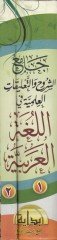 جامع
الشروح والتعليقات
العلمية في
اللغة
العربية
١
٢